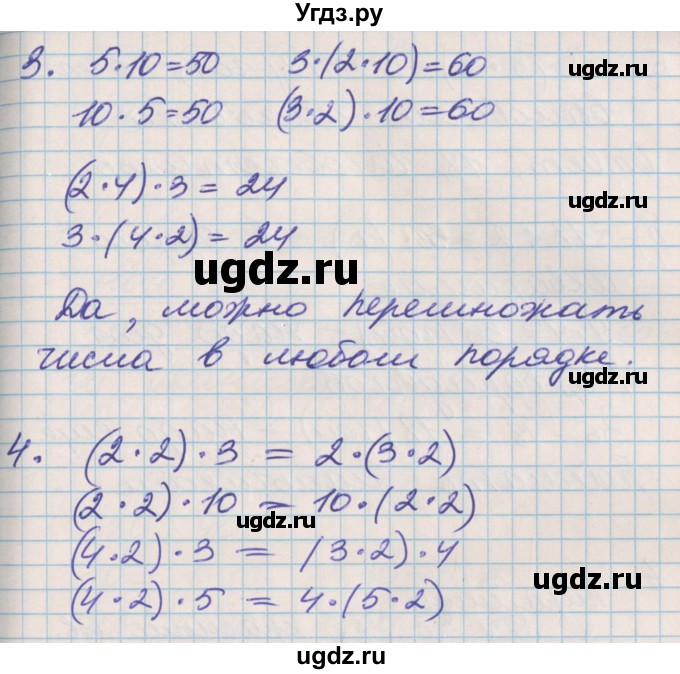 Угдз.ру
3. 5·10=50 3·(2·10)=60
ugdz.ru
10·5=50 (3·2)·10=60
(2·4)·3=24
ugdz.ru
3·(4·2)=24
ugdz.ru
Да, можно перемножать
числа в любом порядке.
ugdz.ru
4. (2·2)·3 = 2·(3·2)
(2·2)·10 = 10·(2·2)
ugdz.ru
(4·2)·3 = (3·2)·4
ugdz.ru
(4·2)·5 = 4·(5·2)
ugdz.ru